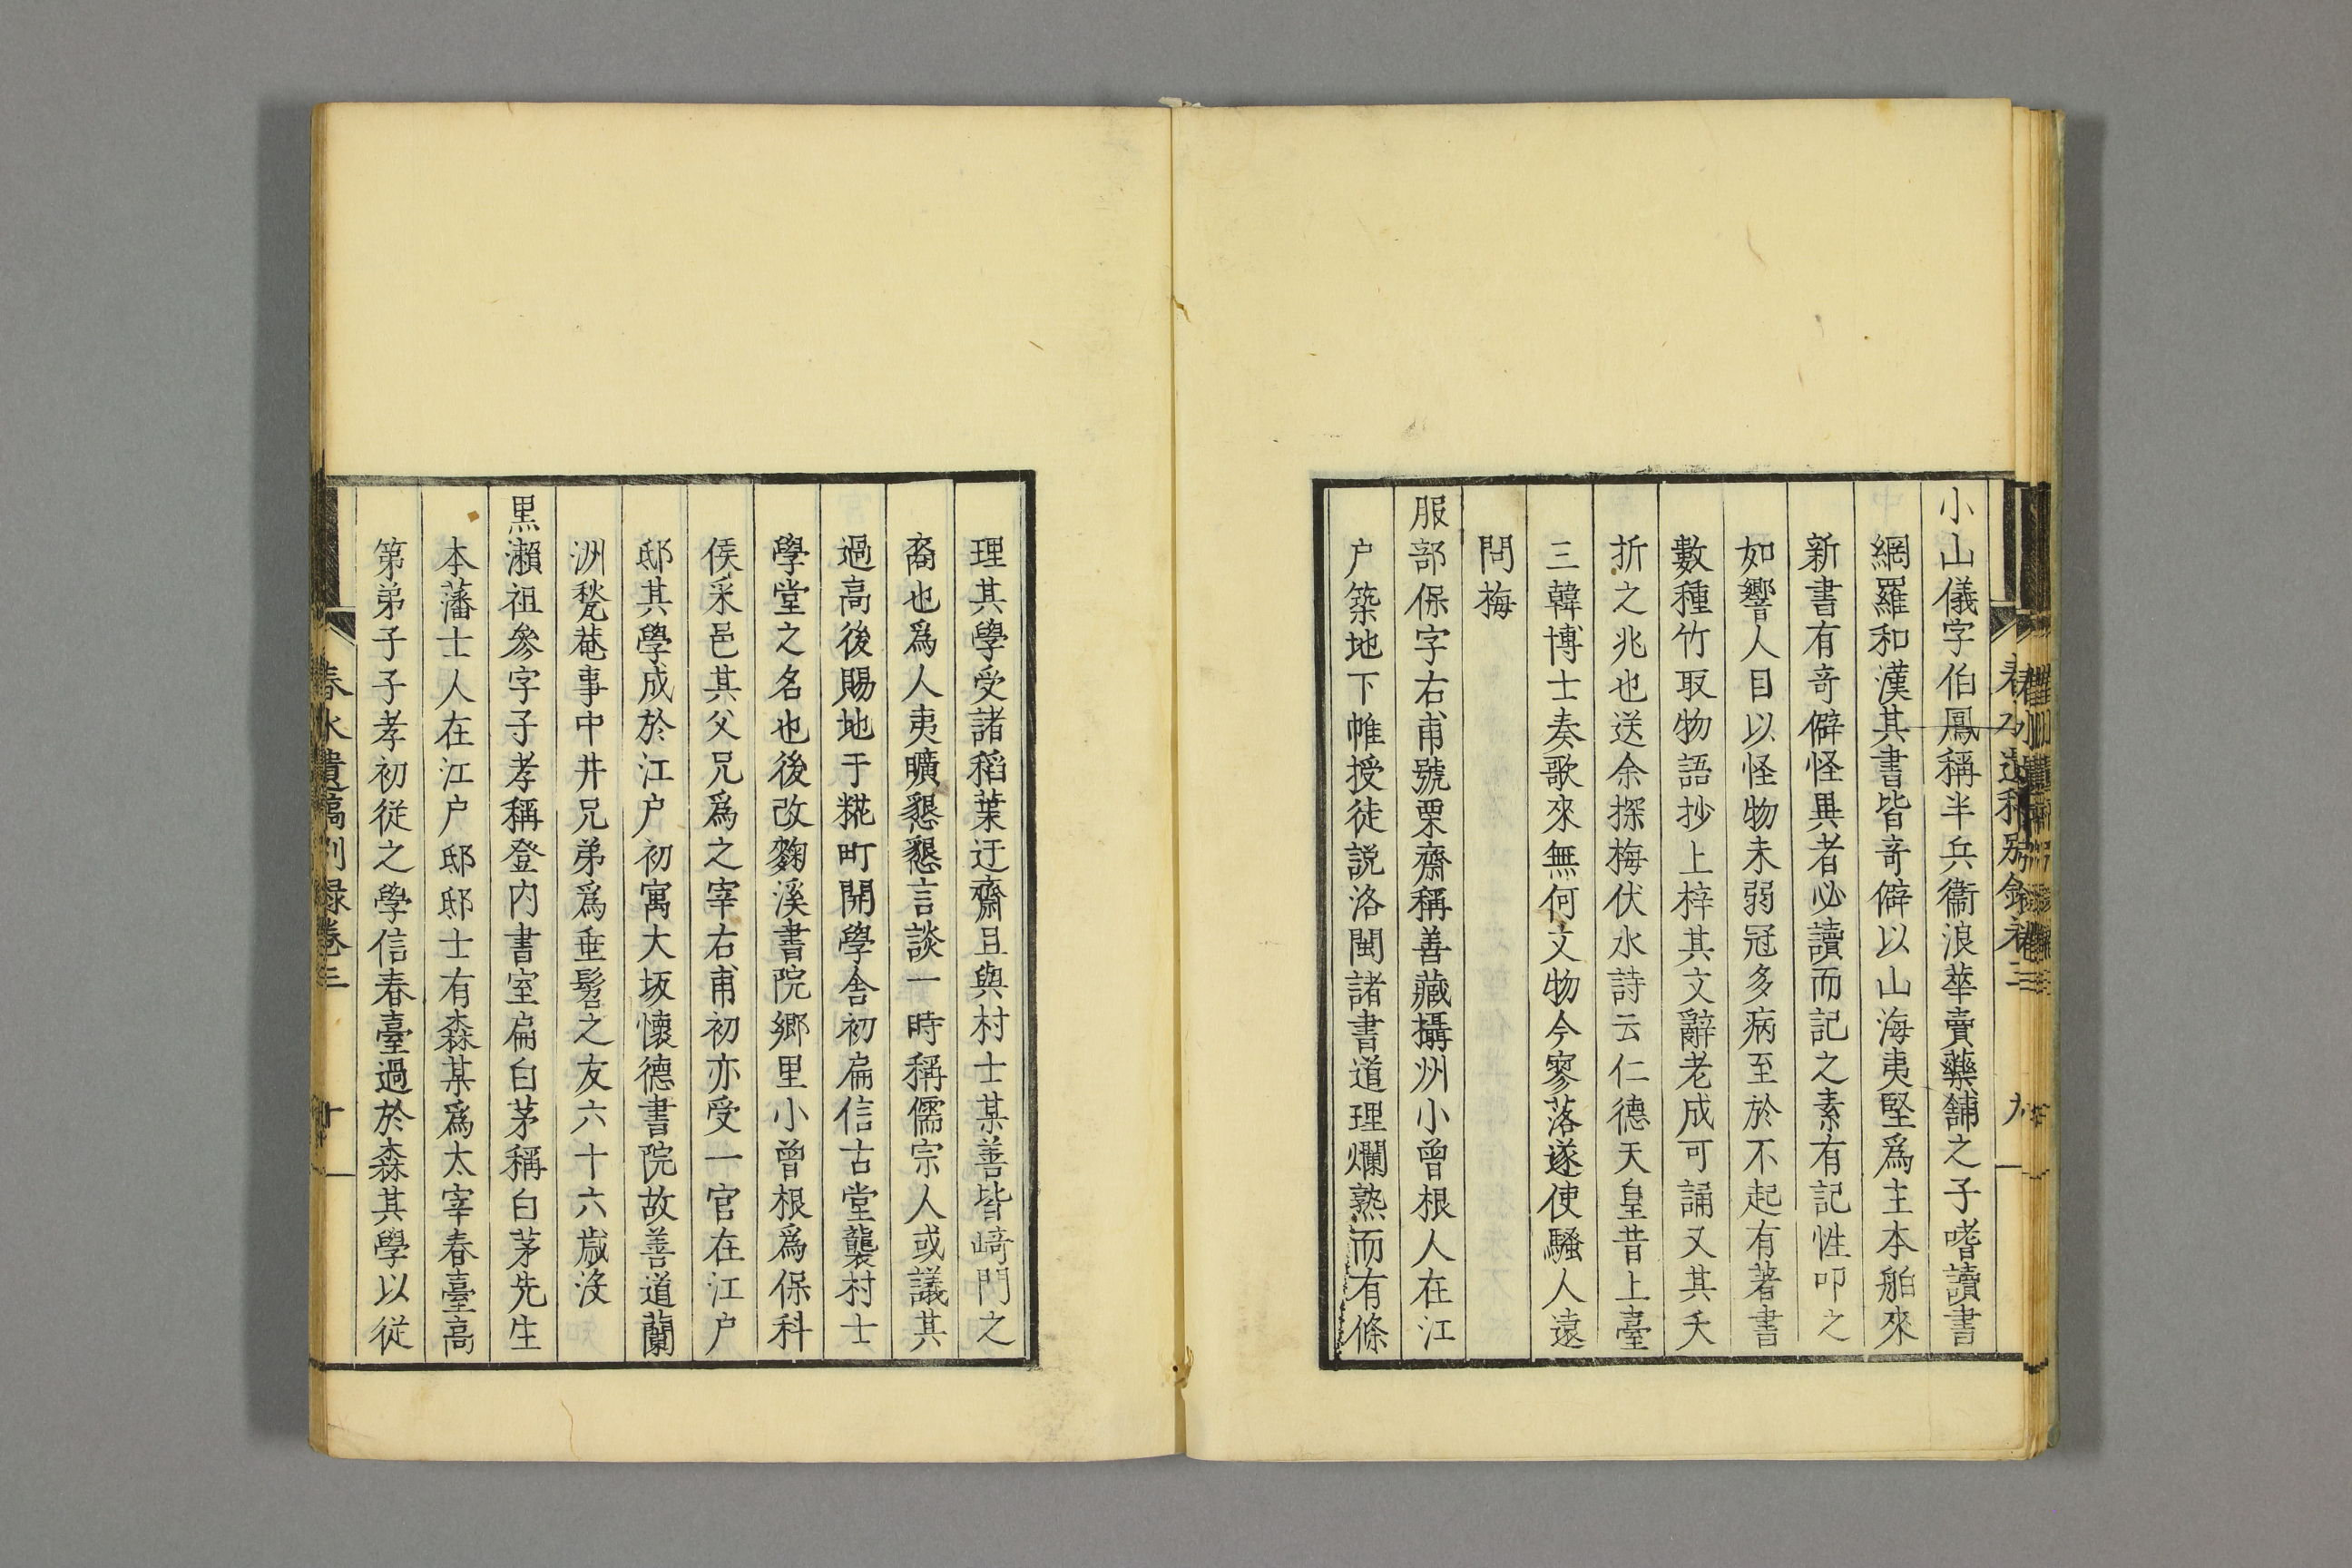 小山儀字伯鳳稱半兵衞浪華賣藥舖之子嗜讀書
網羅和漢其書皆奇僻以山海夷堅爲主本舶來
新書有奇僻怪異者必讀而記之素有記性叩之
如響人目以怪物未弱冠多病至於不起有著書
數種竹取物語抄上梓其文辭老成可誦又其夭
折之兆也送余探梅伏水詩云仁德天皇昔上臺
三韓博士奏歌來無何文物今寥落遂使騷人遠
問梅
服部保字右甫號栗齋稱善藏攝州小曾根人在江
户築地下帷授徒説洛閩諸書道理爛熟而有條
理其學受諸稻葉迂齋且與村士某善皆﨑門之
裔也爲人夷曠懇懇言談一時稱儒宗人或議其
過高後賜地于糀町開學舍初扁信古堂襲村士
學堂之名也後改麴溪書院鄉里小曾根爲保科
侯采邑其父兄爲之宰右甫初亦受一官在江户
邸其學成於江户初寓大坂懷德書院故善道蘭
洲甃菴事中井兄弟爲垂髫之友六十六歲沒
黑瀨祖參字子孝稱登内書室扁白茅稱白茅先生
本藩士人在江户邸邸士有森某爲太宰春臺高
第弟子子孝初從之學信春臺過於森其學以從
春水遺稿別録卷三
十
春水遺稿別録卷三
九